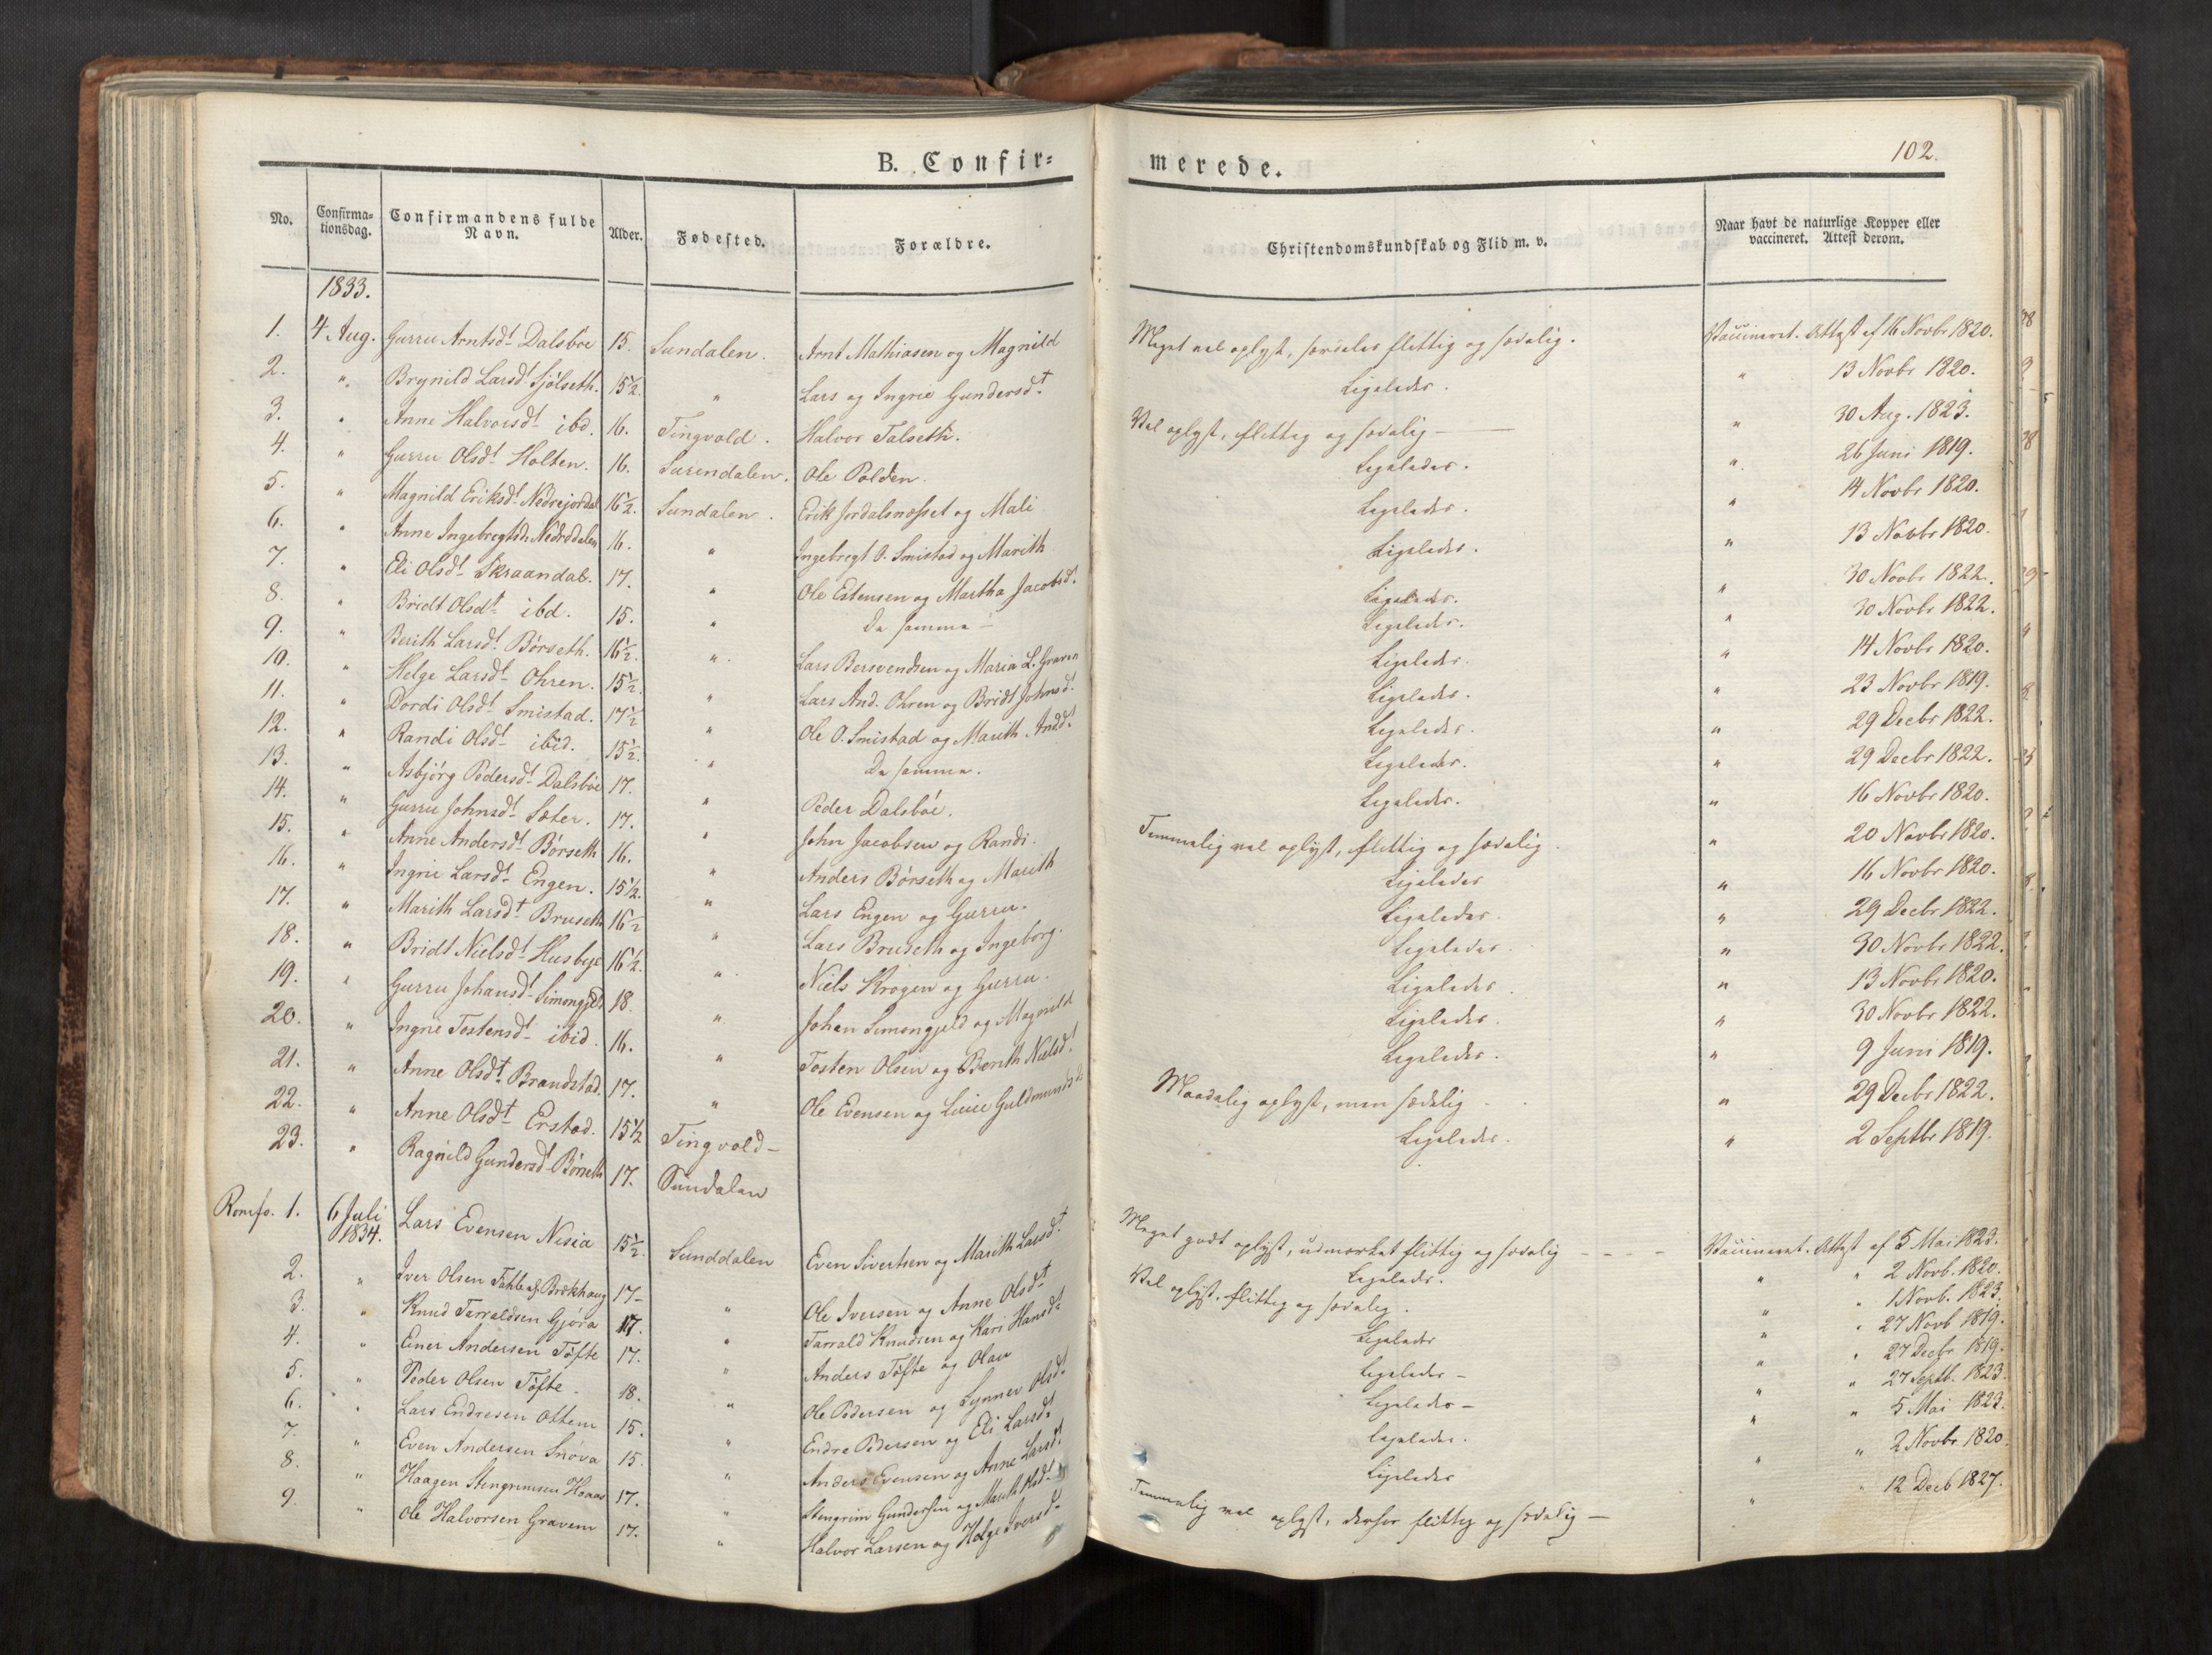 B. Confir=
merede.
102.
No. Confirma=tionsdag. Confirmandens fulde Navn. Alder. Fødested. Forældre. Christendomskundskab og Flid m. v. Naar havt de naturlige Kopper eller vaccineret. Attest derom.
1833.
1. 4 Aug. Gurru Arntsdt Dalsböe 15. Sundalen. Arnt Mathiasen og Magnild Meget vel oplyst, særdeles flittig og sædelig. Vaccineret. Attest af 16 Novbr 1820.
2. " Brynild Larsdt Sjölseth. 15½ " Lars og Ingrie Gundersdt Ligeledes. " 13 Novbr 1820.
3. " Anne Halvorsdt ibd. 16. Tingvold. Halvor Talseth. Vel oplyst, flittig og sædelig — " 30 Aug. 1823.
4. " Gurru Olsdt Holten. 16. Surendalen. Ole Polden. Ligeledes. " 26 Juni 1819.
5. " Magnild Eriksdt Nedrejordal 16½. Sundalen. Erik Jordalsnæsset og Mali Ligeledes. " 14 Novbr 1820.
6. " Anne Ingebregtsdt 16. " Ingebregt O. Smistad og Marith Ligeledes. " 13 Novbr 1820.
7. " Eli Olsdt Skraandal. 17. " Ole Estensen og Martha Jacobsdt Ligeledes. " 30 Novbr 1822.
8. " Bridt Olsdt ibd. 15. " De samme — Ligeledes. " 30 Novbr 1822.
9. " Berith Larsdt Börseth. 16½. " Lars Bersvendsen og Maria L. Graven Ligeledes. " 14 Novbr 1820.
10. " Helge Larsdt Ohren. 15½. " Lars And. Ohren og Bridt Johnsdt Ligeledes. " 23 Novbr 1819.
11. " Dordi Olsdt Smistad. 17½ " Ole O. Smistad og Marith Andt. Ligeledes. " 29 Decbr 1822.
12. " Randi Olsdt ibid. 15½. " De samme. Ligeledes. " 29 Decbr 1822.
13. " Asbjörg Pedersdt Dalsböe 17. " Peder Dalsböe. Ligeledes. " 16 Novbr 1820.
14. " Gurru Johnsdt Sæter. 17. " John Jacobsen og Randi. Temmelig vel oplyst, flittig og sædelig. " 20 Novbr 1820.
15. " Anne Andersdt Börseth 16. " Anders Börseth og Marith Ligeledes " 16 Novbr 1820.
16. " Ingrie Larsdt Engen. 15½. " Lars Engen og Gurru. Ligeledes. " 29 Decbr 1822.
17. " Marith Larsdt Bruseth 16½ " Lars Bruseth og Ingeborg. Ligeledes. " 30 Novbr 1822.
18. " Bridt Nielsdt Husbye 16½. " Niels Krogen og Gurru. Ligeledes. " 13 Novbr 1820.
19. " Gurru Johansdt Simongjeld 18. " Johan Simongjeld og Magnild Ligeledes. " 30 Novbr 1822.
20. " Ingrie Tostensdt ibid. 16. " Tosten Olsen og Berith Nielsdt Ligeledes. " 9 Juni 1819.
21. " Anne Olsdt Brandstad. 17. " Ole Evensen og Guldmunds Maadelig oplyst, men sædelig " 29 Decbr 1822.
22. " Anne Olsdt Erstad. 15½ Tingvold— Ligeledes. " 2 Septbr 1819.
23. " Ragnild Gundersdt Börseth 17. Sundalen
Romfo. 1. 6 Juli 1834. Lars Evensen Nisia 15½. Sunddalen Even Sivertsen og Marith Larsdt Meget godt oplyst, udmærket flittig og sædelig - - - - Vaccineret. Attest af 5 Mai 1823.
2. " Iver Olsen Fahle af Brækhaug 17— " Ole Iversen og Anne Olsdt Ligeledes. " " 2 Novb. 1820.
3. " Knud Tarraldsen Gjöra 17. " Tarrald Knudsen og Kari Hansdt Vel oplyst, flittig og sædelig. " " 1 Novb. 1823.
4. " Einer Andersen Töfte 17. " Anders Töfte og Olau Ligeledes " " 27 Novb 1819.
5. " Peder Olsen Töfte. 18. " Ole Pedersen og Synnev Olsdt Ligeledes — " " 27 Decbr 1819.
6. " Lars Endresen Ottem 15. " Endre Pedersen og Eli Larsdt Ligeledes — " " 27 Septb. 1823.
7. " Even Andersen Snöva 15. " Anders Evensen og Anne Larsdt Ligeledes. " " 5 Mai 1823.
8. " Haagen Stengrimsen Hoaas 17. " Stengrim Gundersen og Marith Olsdt Ligeledes " " 2 Novbr. 1820
9. " Ole Halvorsen Gravem 17. " Halvor Larsen og Helge Iversdt Temmelig vel oplyst, derhos flittig og sædelig — " " 12 Decb 1827.